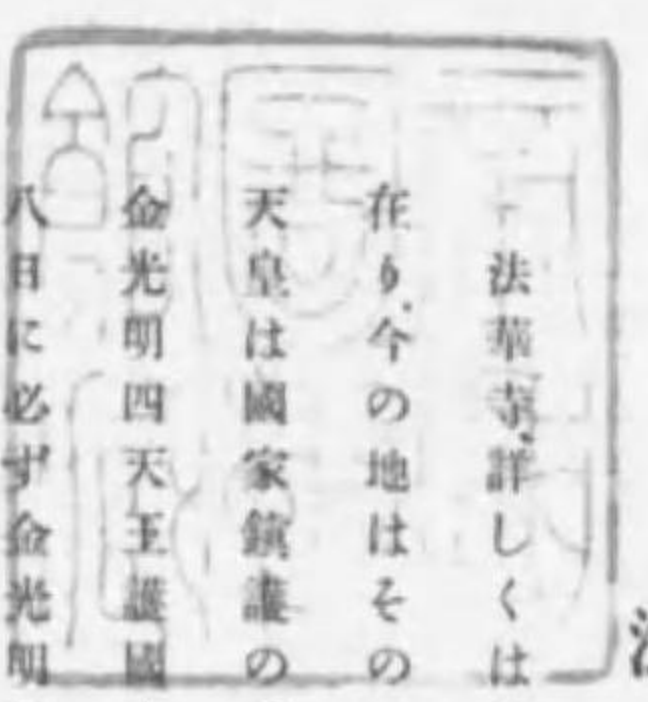 法華寺、詳しくは
在り、今の地はその
天皇は國家鎭護の
金光明四天王護國
八日に必ず金光明